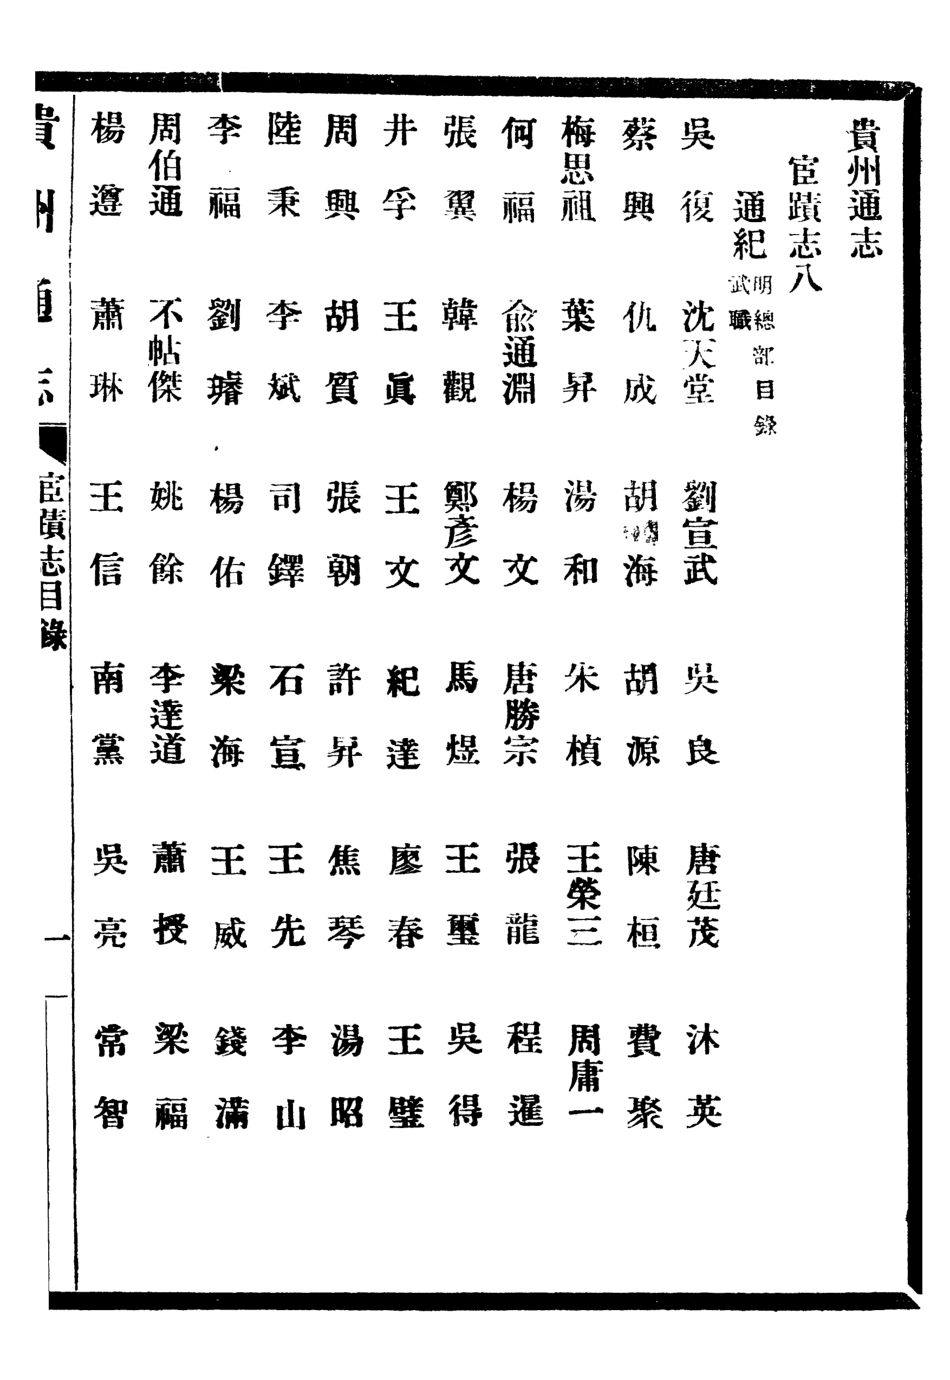 貴州通志
宦蹟志八
通紀 明總部目錄 武職
吳復 沈天堂 劉宣武 吳良 唐廷茂 沐英
蔡興 仇成 胡海 胡源 陳桓 費聚
梅思祖 葉昇 湯和 朱楨 王榮三 周庸一
何福 俞通淵 楊文 唐勝宗 張龍 程暹
張翼 韓觀 鄭彥文 馬煜 王璽 吳得
井孚 王眞 王文 紀達 廖春 王璧
周興 胡質 張朝 許昇 焦琴 湯昭
陸秉 李斌 司鐸 石宣 王先 李山
李福 劉璿 楊佑 梁海 王威 錢滿
周伯通 不帖傑 姚餘 李達道 蕭授 梁福
楊遵 蕭琳 王信 南黨 吳亮 常智
貴州通志
宦蹟志目錄
一